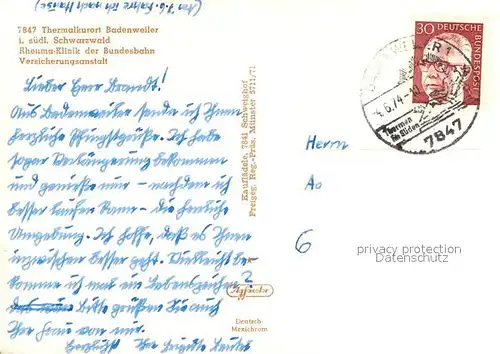 (Am 7.6. fahre ich nach Hause)
7847 Thermalkurort Badenweiler
i. südl. Schwarzwald
Rheuma-Klinik der Bundesbahn
Versicherungsanstalt
Lieber Herr Brandt!
Aus Badenweiler sende ich Ihnen
herzliche Pfingstgrüße. Ich habe
sogar Verlängerung bekommen
und genieße nun - nachdem ich
besser laufen kann - die herrliche
Umgebung. Ich hoffe, daß es Ihnen
inzwischen besser geht. Vielleicht be-
komme ich mal ein Lebenszeichen?
Bitte grüßen Sie auch
Ihre Frau von mir.
Herzlichst Ihre Brigitte
Kauflädele, 7841 Schweighof
Freigeg. Reg.-Präs. Münster 5711/71
Deutsch-
Mexichrom
30 DEUTSCHE
BUNDESPOST
BADENWEILER 1
4.6.74-
Thermen
im Süden
7847
Herrn
Ao
6
privacy protection
Datenschutz